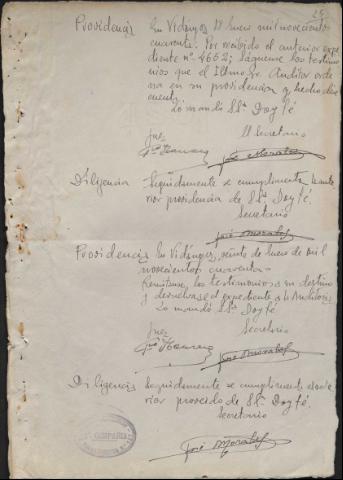 25
Providencia En Vidángoz 18 Enero mil novecientos
cuarenta. Por recibido el anterior expe
diente nº 4652; Sáquense los testimo
nios que el Iltmo Sr. Auditor orde
na en su providencia y hecho dése
cuenta.
Lo mandó SSª Doy fé
Juez El Secretario
José Morales
Diligencia Seguidamente se cumplimenta la ante
rior providencia de SSª Doy fé.
Secretario
José Morales
Providencia En Vidángoz, veinte de Enero de mil
novecientos cuarenta.
Remítanse los testimonios a su destino
y devuélvase el expediente a la Auditoría
Lo mandó SSª Doy fé
Juez Secretario
José Morales
Diligencia Seguidamente se cumplimenta el ante
rior proveído de SSª Doy fé.
Secretario
José Morales
COMPAÑIA